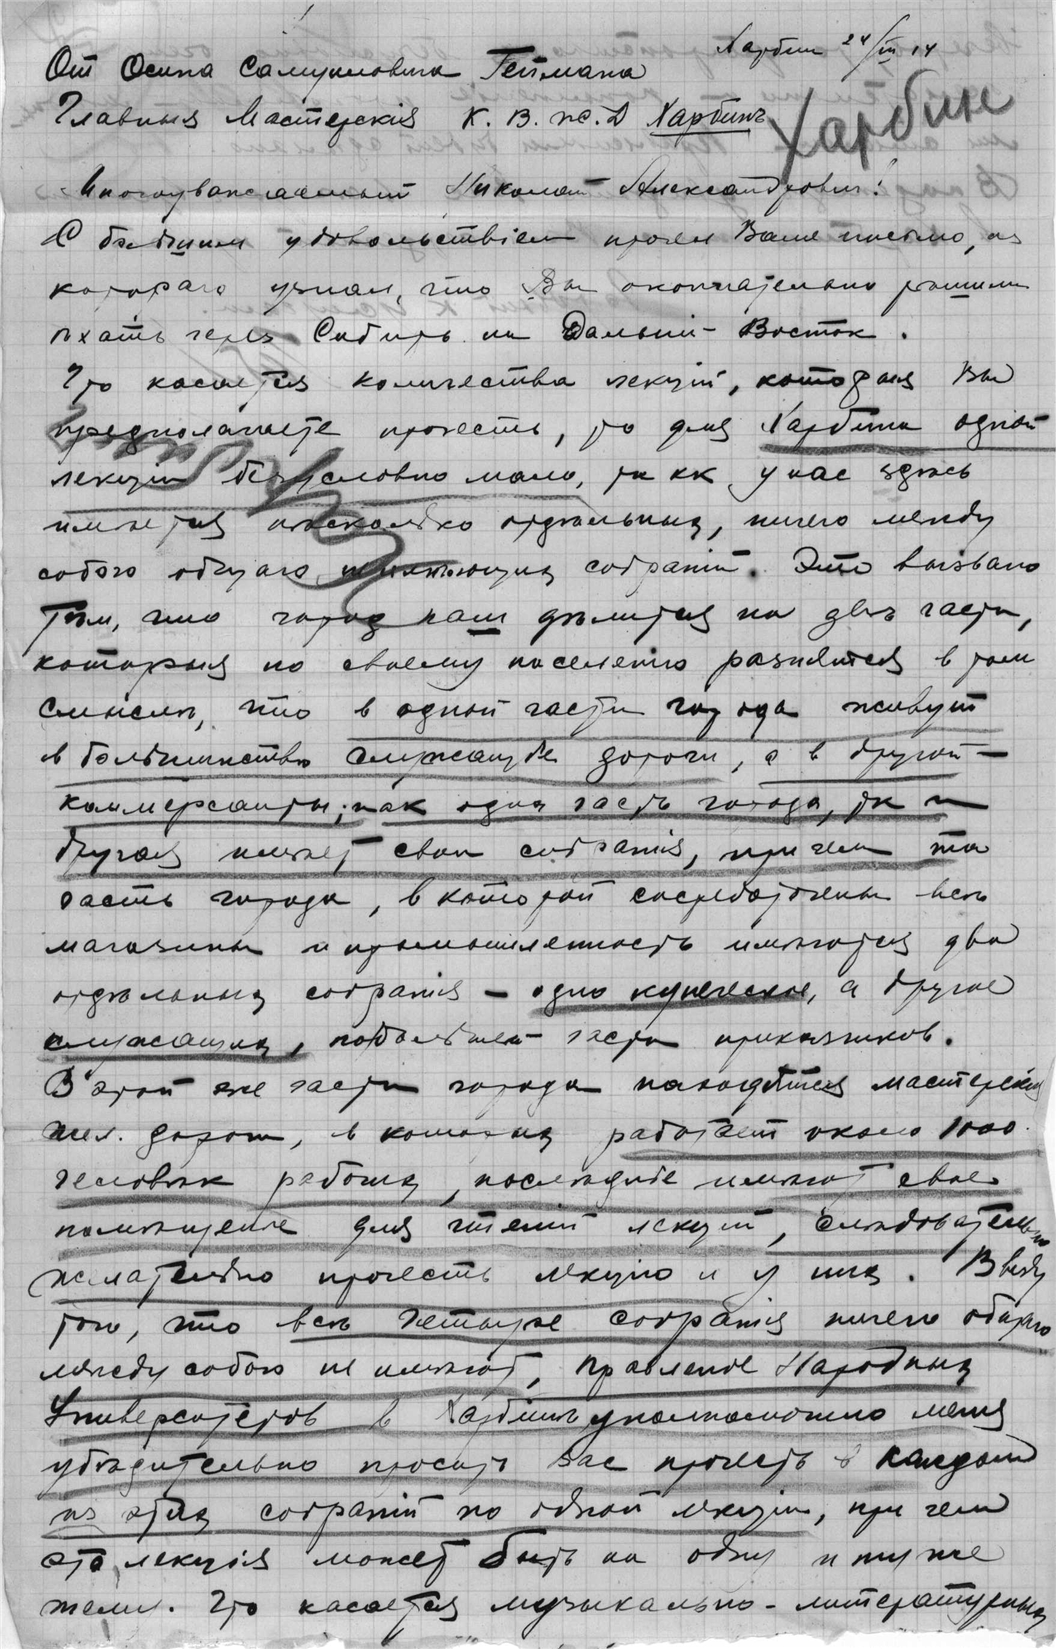 Харбин 24/III 14
От Осипа Самуиловича Геймана
Главныя Мастерския К. В. ж. д Харбинъ
Харбин
Многоуважаемый Николай Александрович!
С большим удовольствием прочел Ваше письмо, из
котораго узнал, что Вы окончательно решили
ѣхать через Сибирь на Дальний Восток.
Что касается количества лекций, которыя Вы
предполагаете прочесть, то для Харбина одной
лекции безусловно мало, тк кк у нас здѣсь
имѣется нѣсколько отдѣльных, ничего между
собою общаго неимѣющих собраний. Это вызвано
тѣм, что город наш дѣлится на двѣ части,
которыя по своему населению разнятся в том
смыслѣ, что в одной части города живут
в большинствѣ служащие дороги, а в другой –
коммерсанты; как одна часть города, тк и
другая имѣет свои собрания, при чем та
часть города, в которой сосредоточены всѣ
магазины и промышленность имѣются два
отдѣльных собрания – одно купеческое, а другое
служащих, по большей части приказчиков.
В этой же части города находятся мастерския
жел. дорог, в которых работает около 1000
человѣк рабочих, последние имѣют свое
помѣщение для чтений лекций, слѣдовательно
желательно прочесть лекцию и у них. В виду
того, что всѣ четыре собрания ничего общаго
между собою не имѣют, правление Народных
Университетов в Харбинѣ уполномочило меня
убѣдительно просить Вас прочесть в каждом
из этих собраний по одной лекции, при чем
эта лекция может быть на одну и туже
тему. Что касается музыкально-литературных